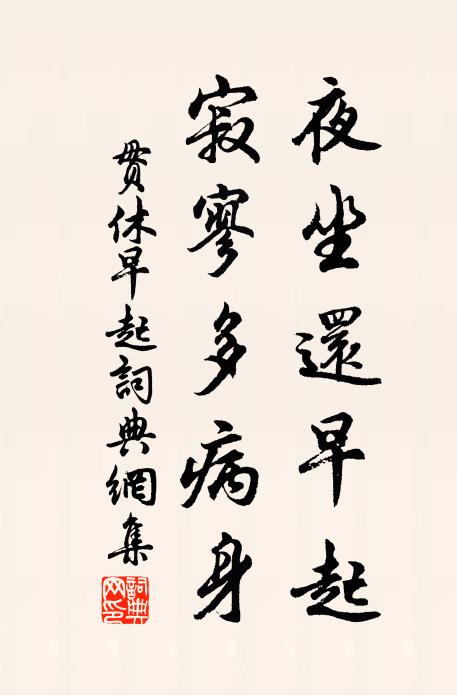 夜坐還早起
寂寥多病身
貫休早起詞典網集
詞典网印